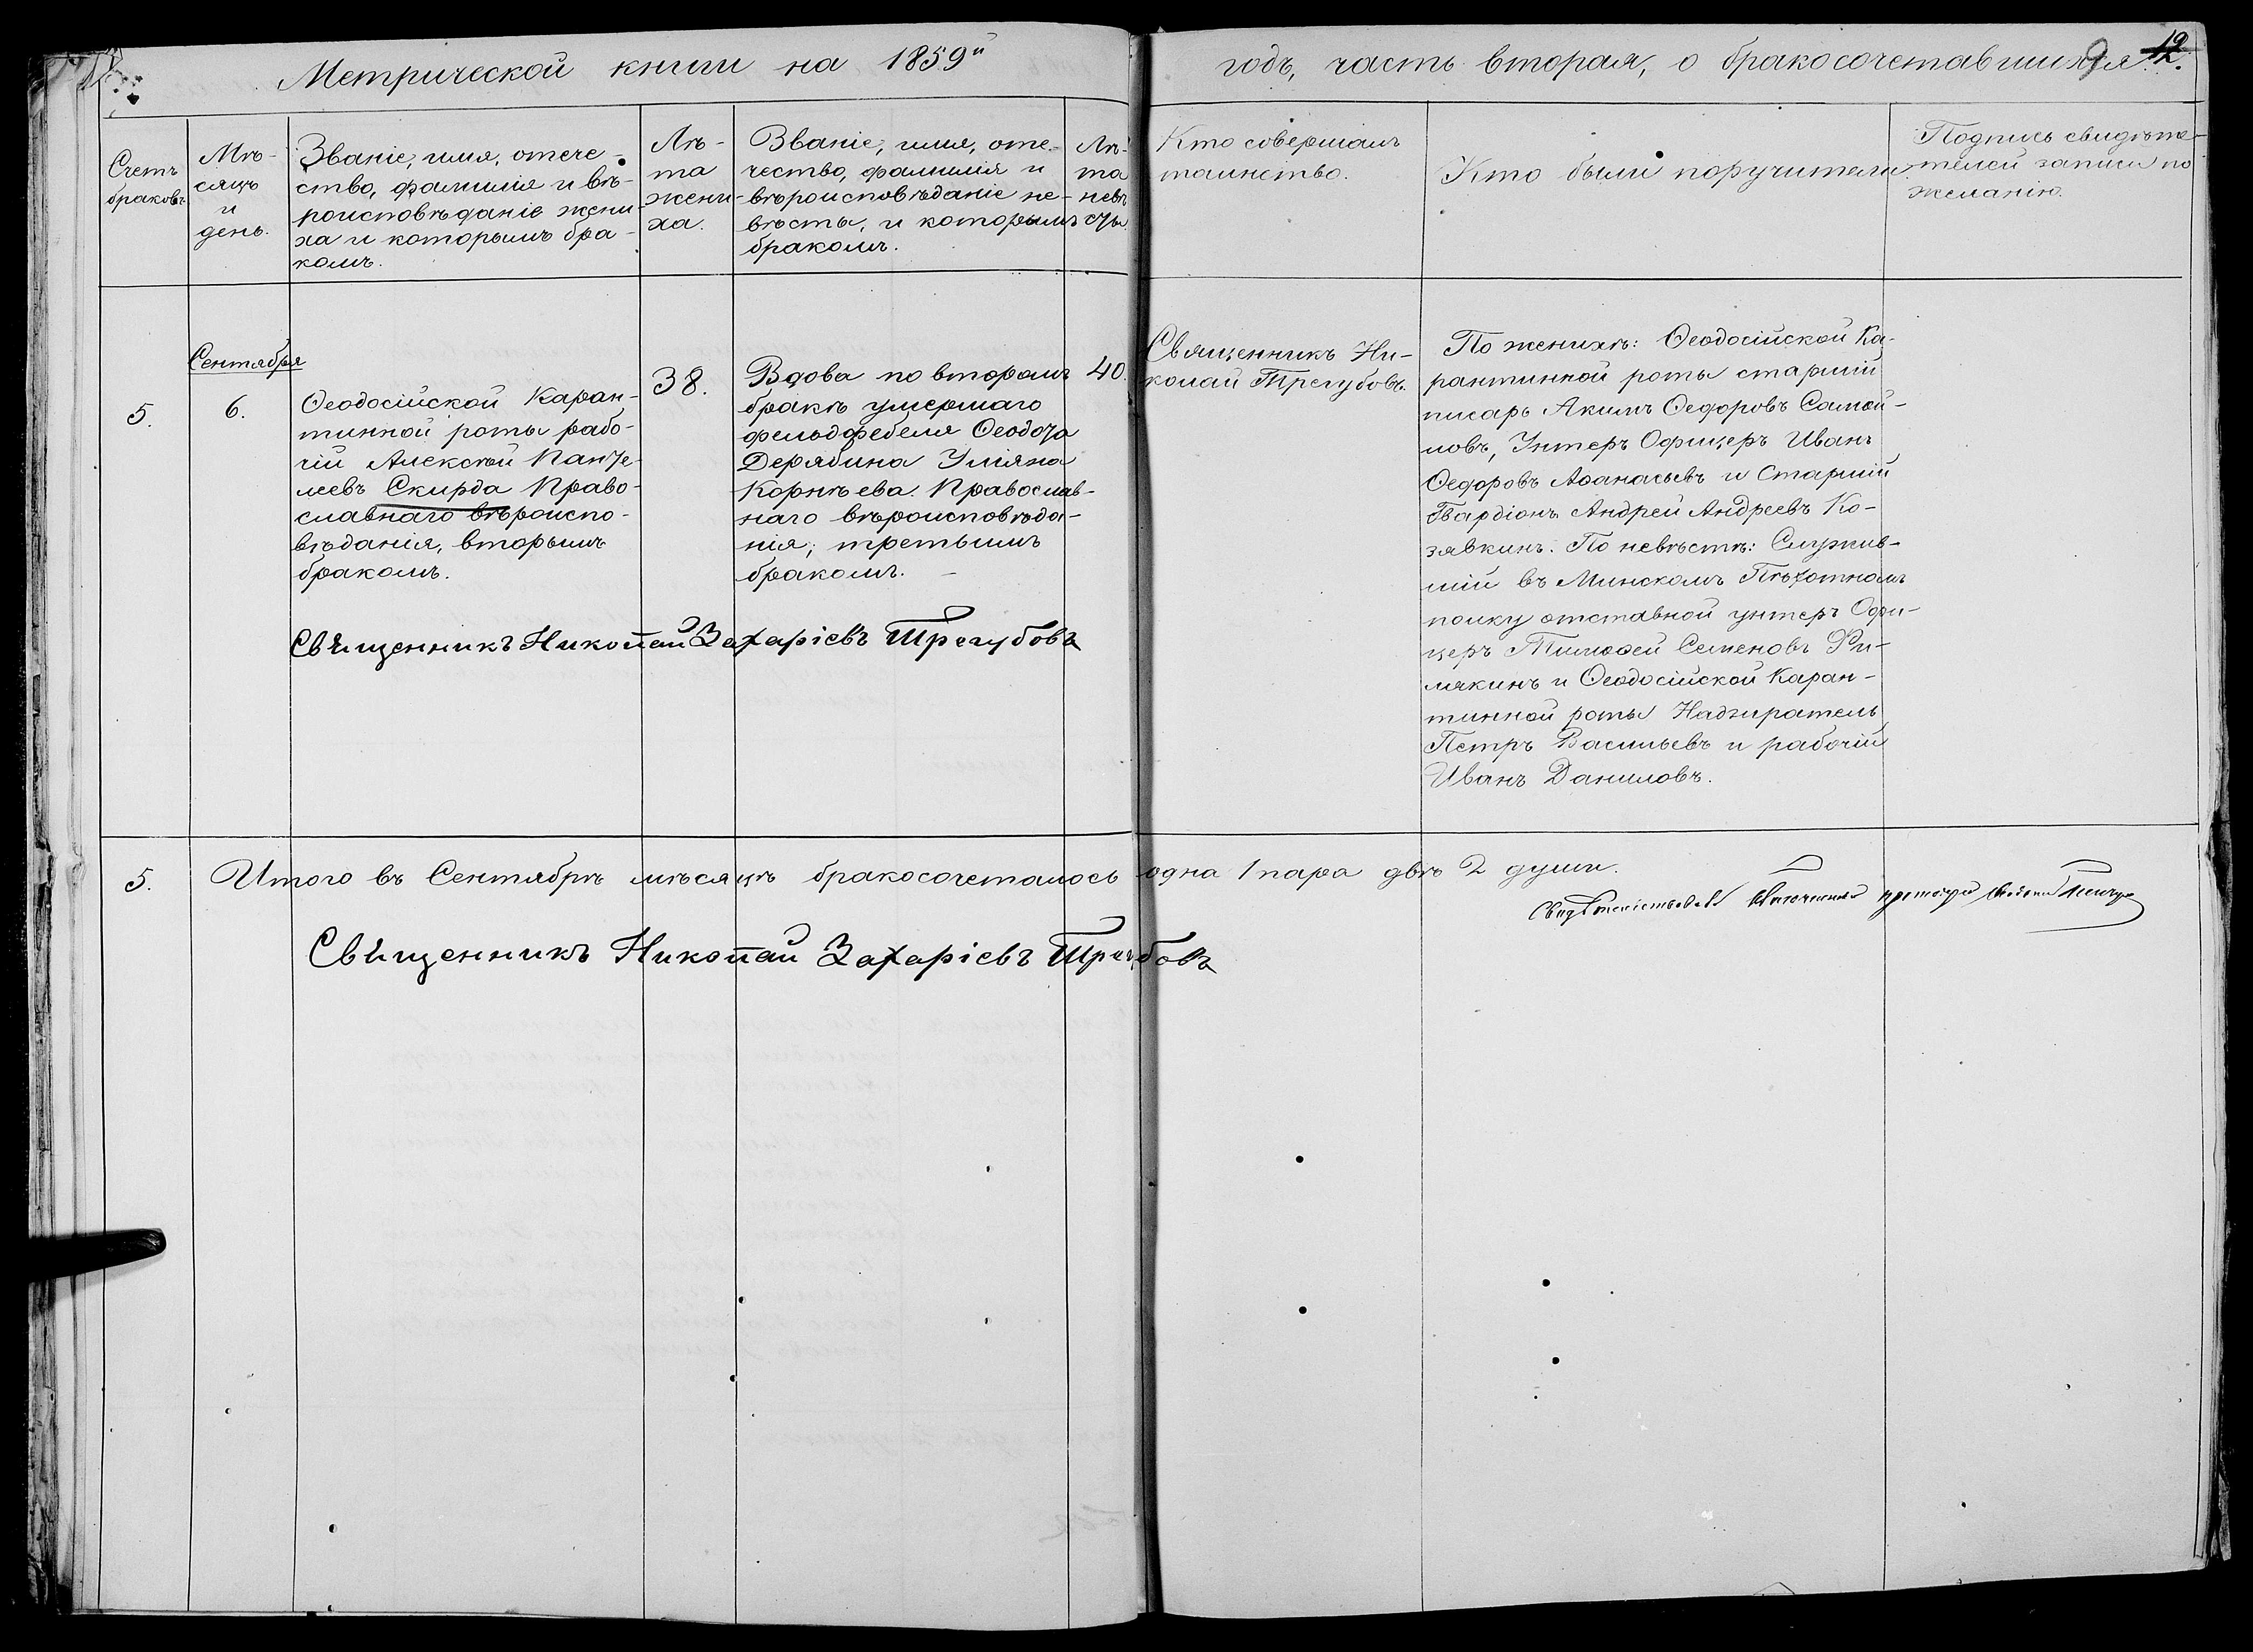 Метрической книги на 1859й годъ, часть вторая, о бракосочетавшихся.
9 12.
Счетъ
браковъ.
Мѣ-
сяцъ
и
день.
Званіе, имя, отече-
ство, фамилія и вѣ-
роисповѣданіе жени-
ха и которымъ бра-
комъ.
Лѣ-
та
жени-
ха.
Званіе, имя, оте-
чество, фамилія и
вѣроисповѣданіе не-
вѣсты, и которымъ
бракомъ.
Лѣ-
та
невѣ
сты.
Кто совершалъ
таинство.
Кто были поручители.
Подпись свидѣте-
телей записи по
желанію.
5.
Сентября
6.
Ѳеодосійской Каран-
тинной роты рабо-
чій Алексѣй Панте-
леевъ Скирда Право-
славнаго вѣроиспо-
вѣданія, вторымъ
бракомъ.
38.
Вдова по второмъ
бракѣ умершаго
фельдфебеля Ѳеодота
Дерябина Уліяна
Корнѣева. Православ-
наго вѣроисповѣда-
нія, третьимъ
бракомъ. -
40.
Священникъ Ни-
колай Трегубовъ.
По женихѣ: Ѳеодосійской Ка-
рантинной роты старшій
писарь Акимъ Ѳедоровъ Самой-
ловъ, Унтеръ Офицеръ Иванъ
Ѳедоровъ Аѳанасьевъ и Старшій
Гвардіонъ Андрей Андреевъ Ко-
зявкинъ. По невѣстѣ: Служив-
шій въ Минскомъ Пѣхотномъ
полку отставной унтеръ Офи-
церъ Тимоѳей Семеновъ Фи-
лякинъ и Ѳеодосійской Каран-
тинной роты Надзиратель
Петръ Васильевъ и рабочій
Иванъ Даниловъ.
Священникъ Николай Захаріевъ Трегубовъ
5.
Итого въ Сентябрѣ мѣсяцѣ бракосочеталось одна 1 пара двѣ 2 души.
Священникъ Николай Захаріевъ Трегубовъ